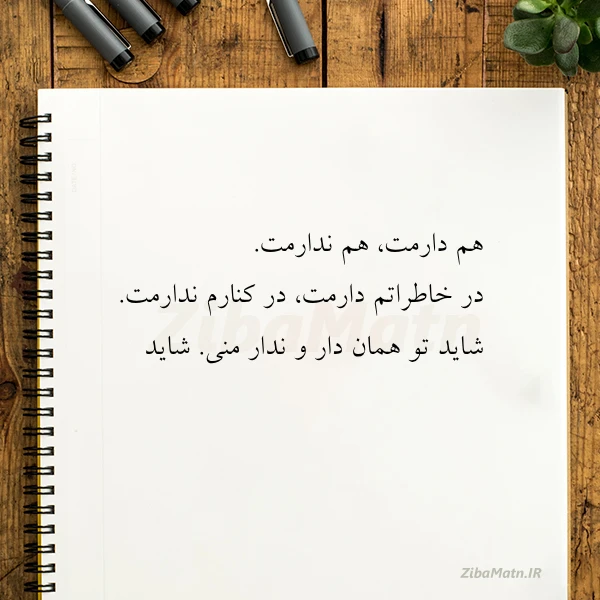 هم دارمت، هم ندارمت.
در خاطراتم دارمت، در کنارم ندارمت.
شاید تو همان دار و ندار منی. شاید
ZibaMatn
ZibaMatn.IR